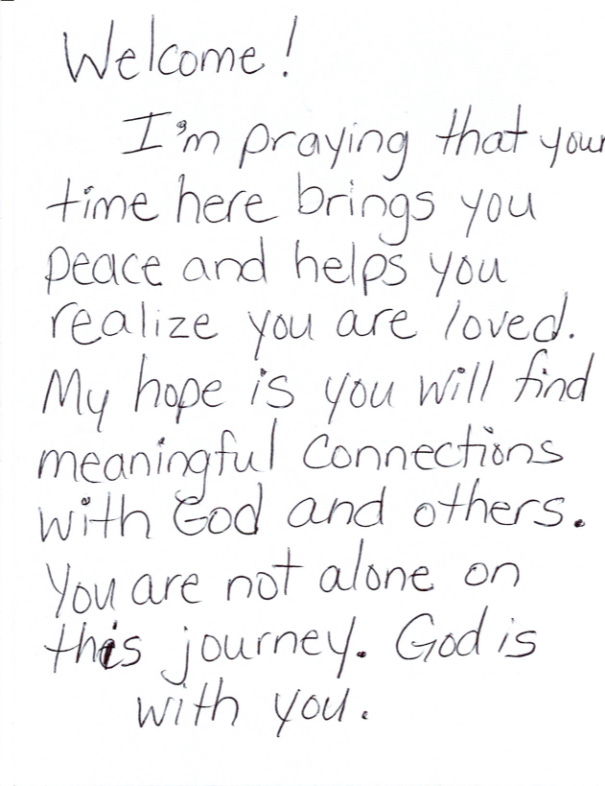 Welcome!
I'm praying that your
time here brings you
peace and helps you
realize you are loved.
My hope is you will find
meaningful connections
with God and others.
You are not alone on
this journey. God is
with you.